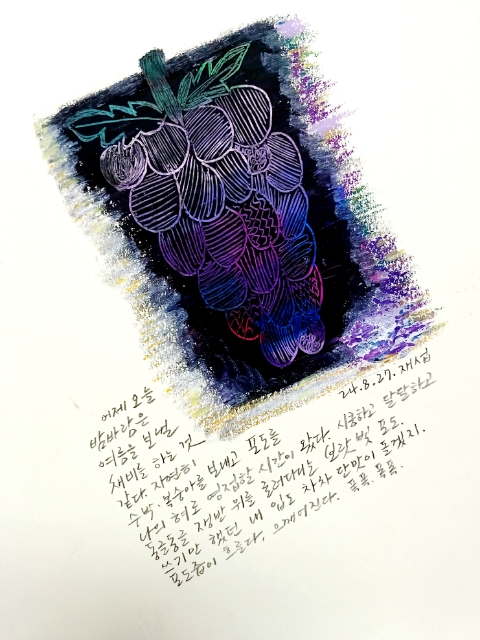 24.8.27. 재섭
어제 오늘
밤바람은
여름을 보낼
채비를 하는 것
같다. 자연히
수박, 복숭아를 보내고 포도를
나의 혀로 영접한 시간이 왔다. 시큼하고 달달하고
동글동글 쟁반 위를 굴러다니는 보랏빛 포도.
쓰기만 했던 내 입도 차차 단맛이 돌겠지.
포도즙이 흐른다. 으깨어진다. 톡톡. 톡톡.